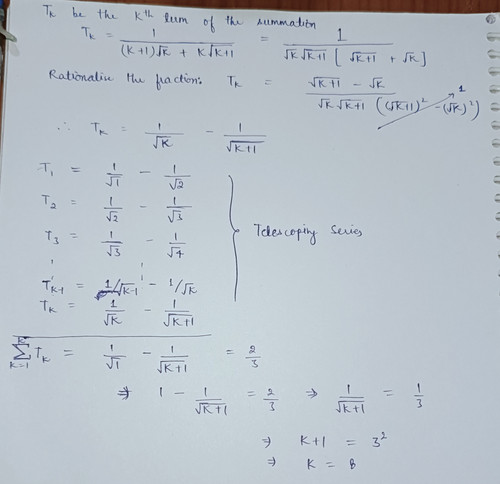 Tk be the Kth sum of the summation
Tk = 1/((K+1)√K + K√K+1) = 1/(√K √K+1 [√K+1 + √K])
Rationalise the fraction: Tk = (√K+1 - √K)/(√K √K+1 ((√K+1)² - (√K)²)) 1
∴ Tk = 1/√K - 1/√K+1
T1 = 1/√1 - 1/√2
T2 = 1/√2 - 1/√3
T3 = 1/√3 - 1/√4
Telescoping Series
TK-1 = 1/√K-1 - 1/√K
Tk = 1/√K - 1/√K+1
K
∑ Tk = 1/√1 - 1/√K+1 = 2/3
K=1
⇒ 1 - 1/√K+1 = 2/3 ⇒ 1/√K+1 = 1/3
⇒ K+1 = 3²
⇒ K = 8